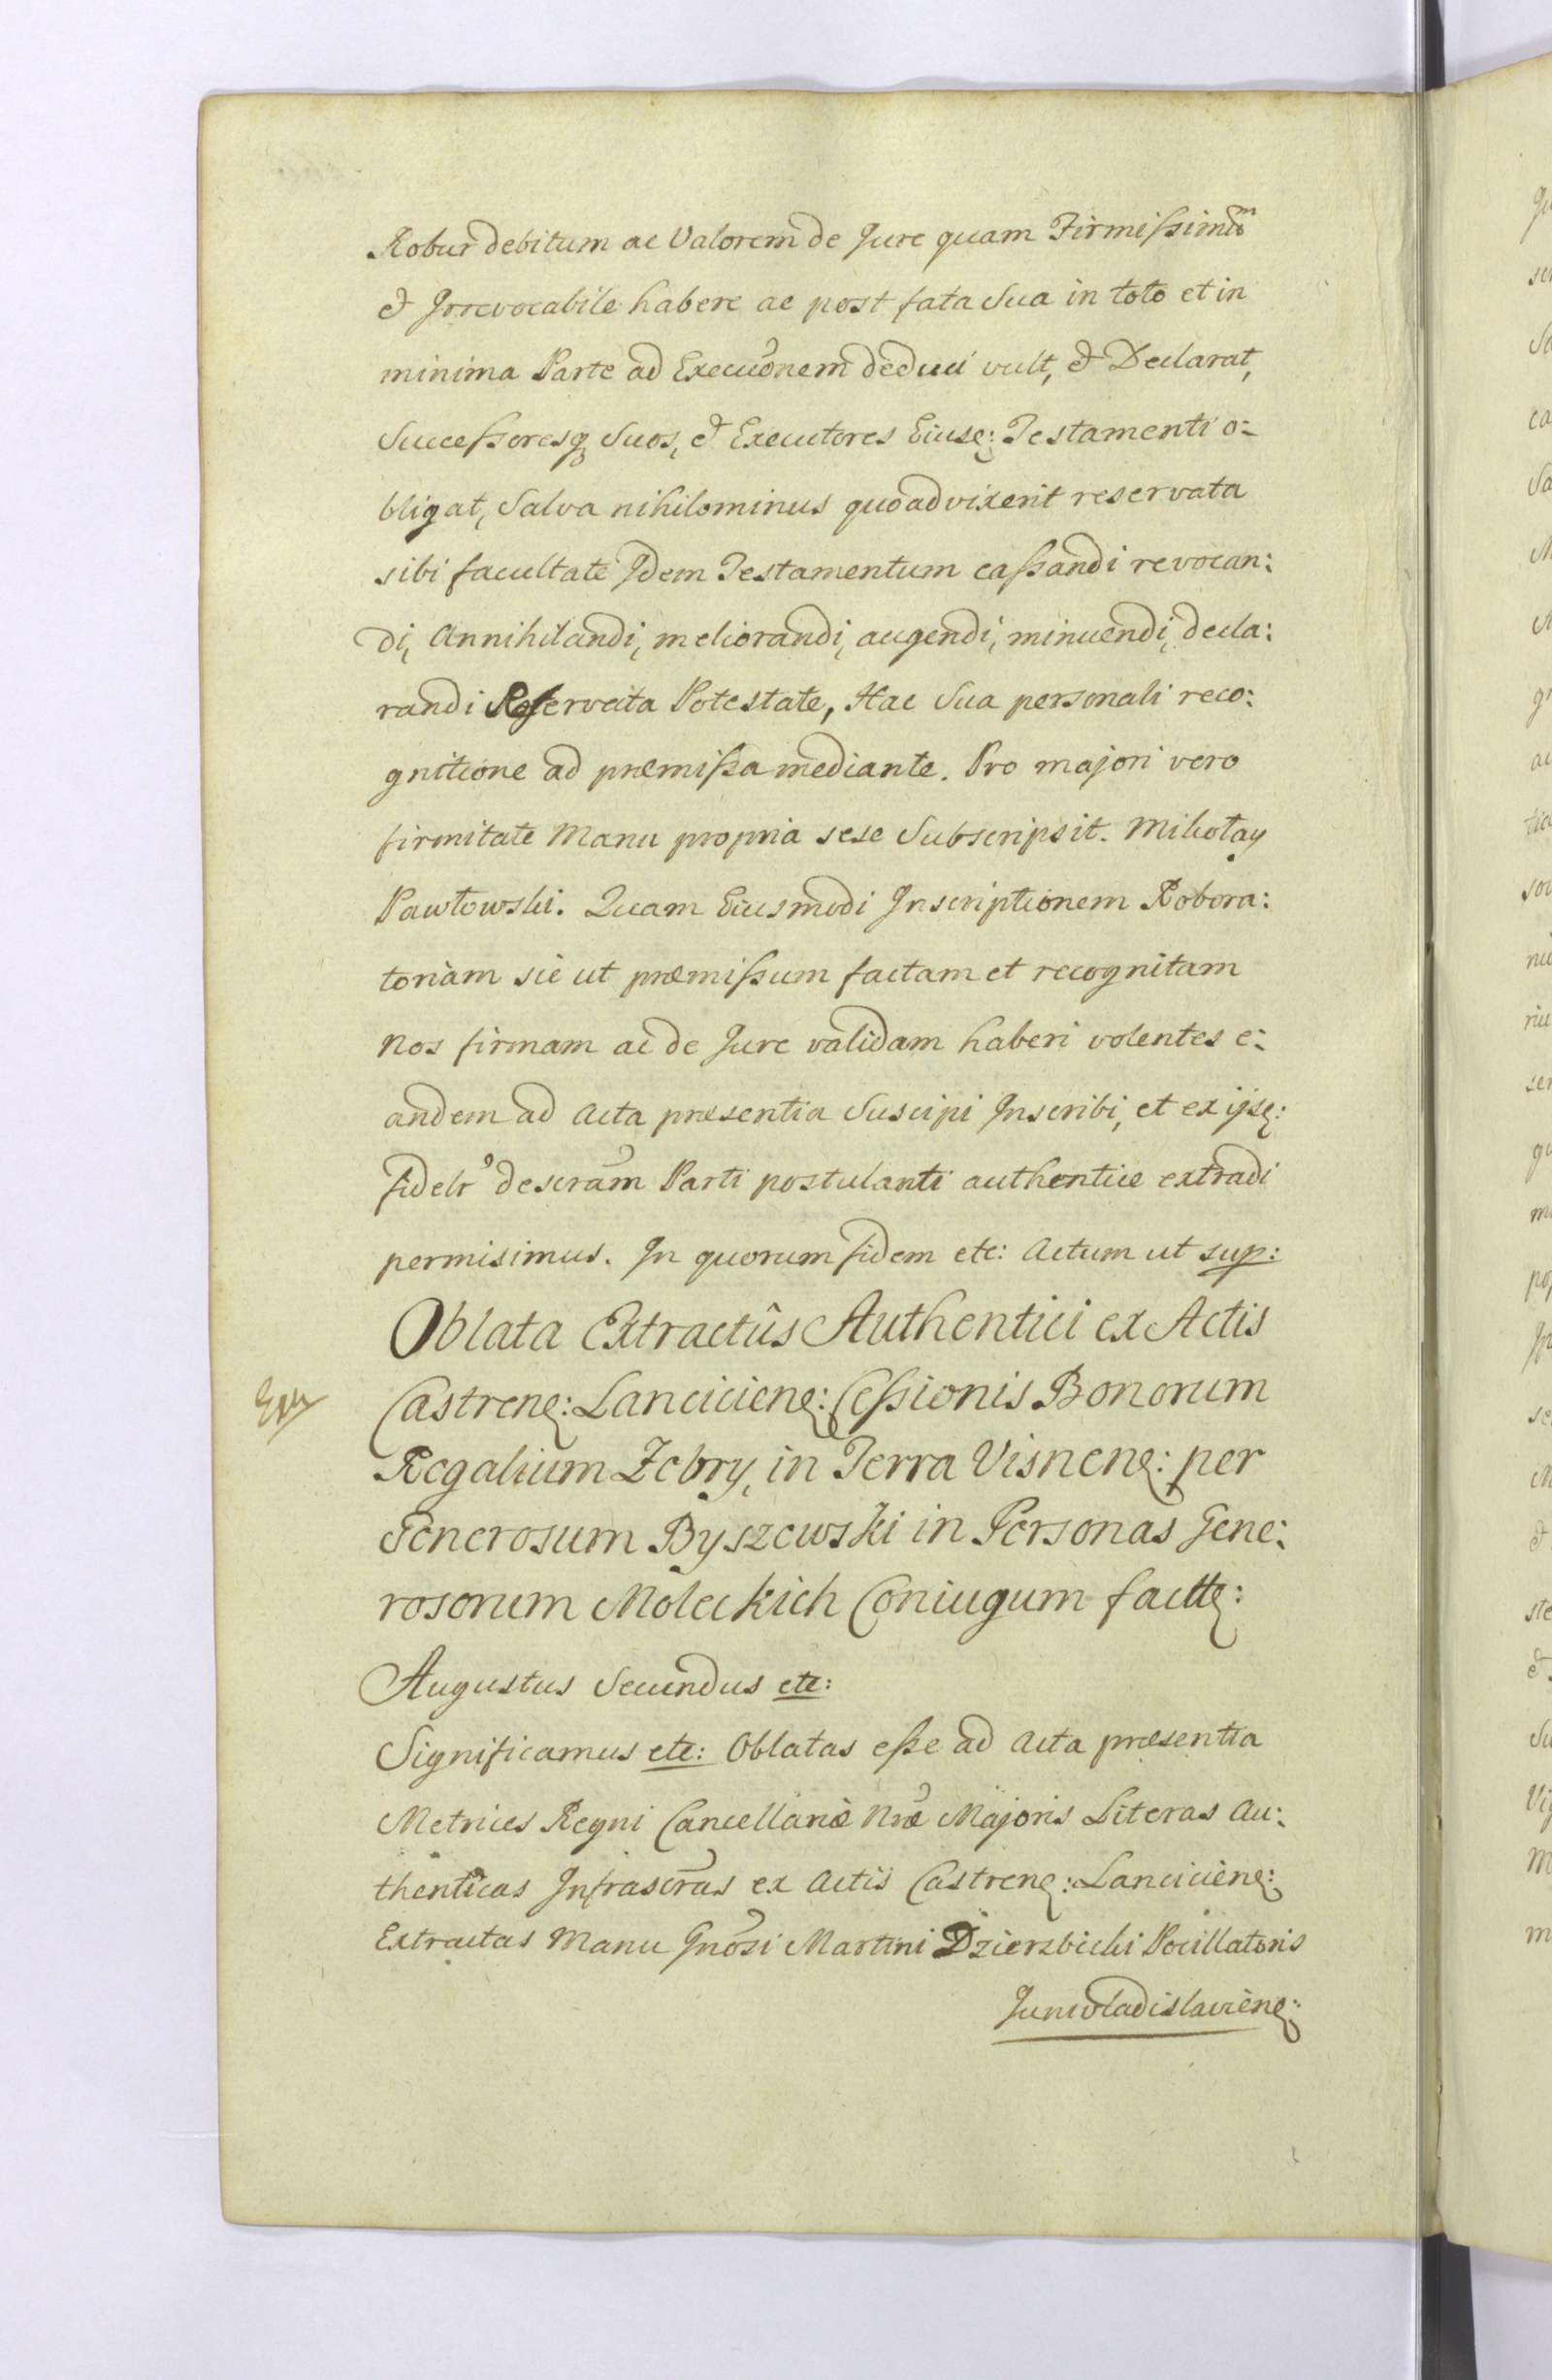 Robur debitum ac Valorem de Jure quam Firmissimũ
et Irrevocabile habere ac post fata Sua in toto et in
minima Parte ad Execuõnem deduci vult, et Declarat,
Successoresq Suos, et Executores Eiusq: Testamenti o:
bligat, Salva nihilominus quoad vixerit reservata
sibi facultate Idem Testamentum cassandi revocan:
di, Annihilandi, meliorandi, augendi, minuendi, decla:
randi Reservata Potestate, Hac Sua personali reco:
gnitione ad præmissa mediante. Pro majori vero
firmitate Manu propria sese Subscripsit. Mikołay
Pawłowski. Quam Eiusmodi Inscriptionem Robora:
toriam sic ut præmissum factam et recognitam
Nos firmam ac de Jure validam haberi volentes e:
andem ad Acta præsentia Suscipi Inscribi, et ex ijsq:
fidelr descram̃ Parti postulanti authentice extradi
permisimus. In quorum fidem etc: Actum ut sup:
Oblata Extractûs Authentici ex Actis
Castrenq: Lancicienq: Cessionis Bonorum
Regalium Zebry, in Terra Visnenq: per
Generosum Byszewski in Personas Gene:
rosorum Moleckich Coniugum factq:
Augustus Secundus etc:
Significamus etc: Oblatas esse ad Acta præsentia
Metrices Regni Cancellariæ Nræ Majoris Literas Au:
thenticas Infrascrãs ex Actis Castrenq: Lancicienq:
Extractas Manu Gnõsi Martini Dzierzbicki Pocillatoris
Junivladislavienq: